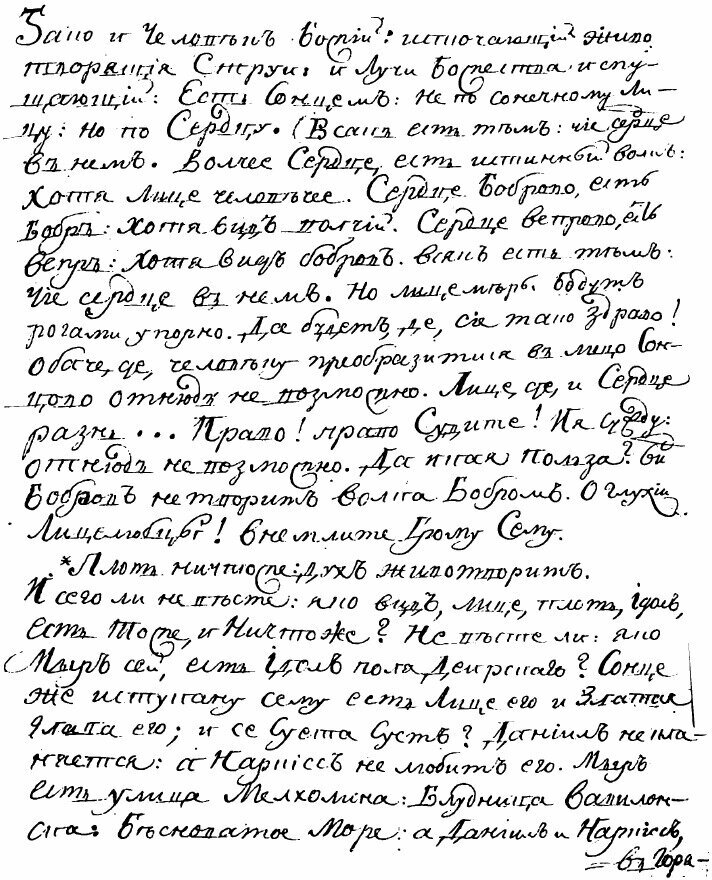 Тако и Человѣкъ Божій: источающій живо
творящія Струи: и Лучи Божества испу-
щающій: Есть Сонцемъ: не по сонечному Ли-
цу: но по Сердцу. Всякъ есть тѣмъ: чіе сердце
въ немъ. Волчее Сердце, есть истинный волкъ:
хотя Лице человѣчее. Сердце Боброво, есть
Бобръ: хотя видъ волчій. Сердце вепрово, есть
вепръ: хотя видъ бобровъ. всякъ есть тѣмъ:
Чіе сердце въ немъ. Но лицемѣры. Бодутъ
рогами упорно. Да будетъ, де, сіе тако здраво!
Обаче, де, человѣку преобразитися въ лицо Сон-
цово отнюдъ не возможно. Лице, де, и Сердце
разнь ... Право! право Судите! И я сужду:
отнюдъ не возможно. Да и кая полза? видъ
Бобровъ не творитъ волка Бобромъ. О глухіи
Лицелюбцы! внемлите Грому Сему.
*Плоть ничтоже: духъ животворитъ.
И сего ли не вѣсте: яко видъ, лице, плоть, ідолъ,
есть Тоже, и Ничтоже? Не вѣсте ли: яко
Мыръ сей, есть ідолъ поля Деирскаго? Сонце
же истукану сему есть Лице его и Златая
Глава его; и се Суета Суетъ? Даніилъ не кла-
няется: а Наркіссъ не любитъ его. Мыръ
есть улица Мелхолина: Блудница вавилон-
ска: Бѣсноватое Море: а Даніилъ и Наркіссъ,
въ Гора-